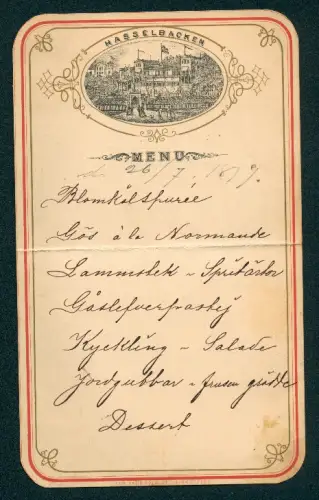 HASSELBACKEN
MENU
d. 26/7 1879.
Blomkålspurée
Gös à la Normande
Lammstek - Spritärtor
Gåslefverpastej
Kyckling - Salade
Jordgubbar - frusen grädde
Dessert